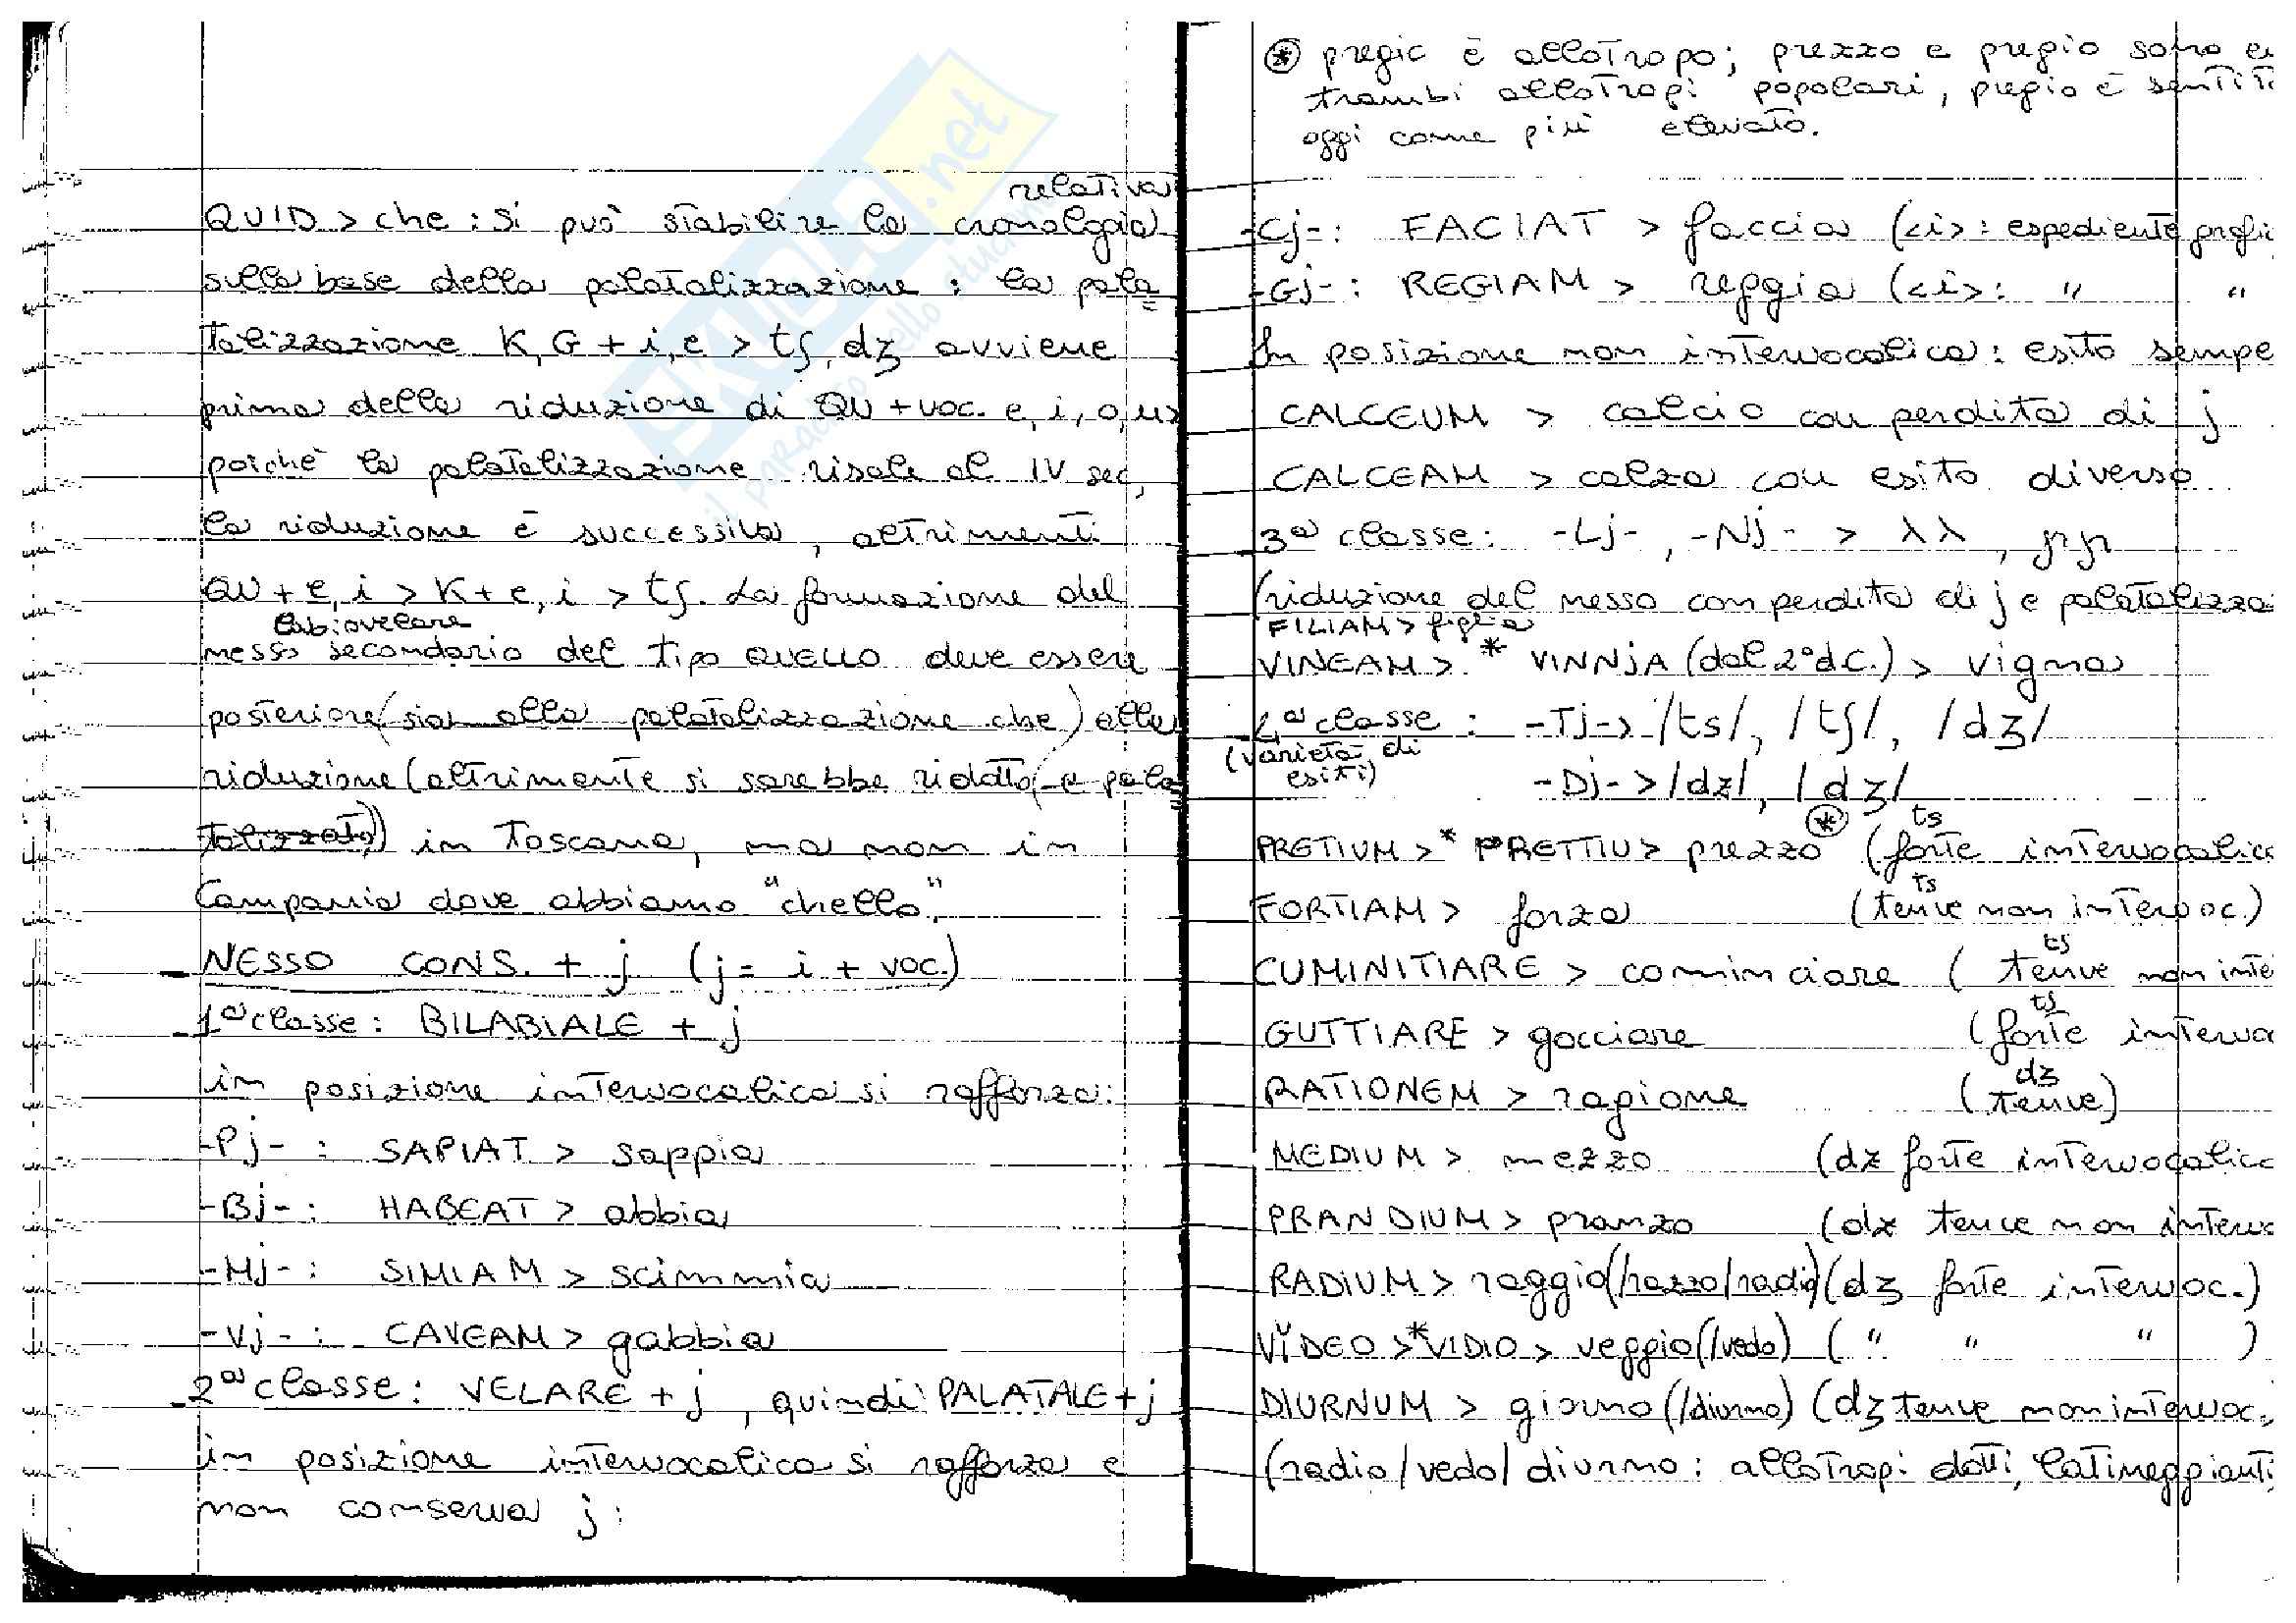 relativa
QUID > che : si può stabilire la cronologia
sulla base della palatalizzazione : la pala
talizzazione K, G + i, e > tʃ, dʒ avviene
prima della riduzione di QU + voc. e, i, o, u,
poiché la palatalizzazione risale al IV sec,
la riduzione è successiva, altrimenti
QU + e, i > K + e, i > tʃ. La formazione del
labiovelare
nesso secondario del tipo QUELLO deve essere
posteriore (sia alla palatalizzazione che) alla
riduzione (altrimente si sarebbe ridotto (e pala
talizzato)) in Toscana, ma non in
Campania dove abbiamo "chello".
NESSO CONS. + j (j = i + voc.)
1ª classe : BILABIALE + j
in posizione intervocalica si rafforza:
-Pj- : SAPIAT > sappia
-Bj- : HABEAT > abbia
-Mj- : SIMIAM > scimmia
-Vj- : CAVEAM > gabbia
2ª classe : VELARE + j, quindi PALATALE + j
in posizione intervocalica si rafforza e
non conserva j :
⊛ pregio è allotropo; prezzo e pregio sono en
trambi allotropi popolari, pregio è sentit
oggi come più elevato.
-Cj- : FACIAT > faccia (<i> : espediente grafi
-Gj- : REGIAM > reggia (<i> : " "
In posizione non intervocalica : esito sempe
CALCEUM > calcio con perdita di j
CALCEAM > calza con esito diverso
3ª classe : -Lj-, -Nj- > λλ, ɲɲ
(riduzione del nesso con perdita di j e palatalizza
FILIAM > figlia
VINEAM > * VINNjA (dal 2° d.C.) > vigna
4ª classe : -Tj- > /ts/, /tʃ/, /dʒ/
(varietà di
esiti) -Dj- > /dz/, /dʒ/
PRETIUM > * PRETTIU > prezzo ⊛ (ts forte intervocalic
FORTIAM > forza (ts tenue non intervoc.)
CUMINITIARE > cominciare (tʃ tenue non inte
GUTTIARE > gocciare (tʃ forte interva
RATIONEM > ragione (dʒ tenue)
MEDIUM > mezzo (dz forte intervocalic
PRANDIUM > pranzo (dz tenue non interv
RADIUM > raggio (/razzo/radio) (dʒ forte intervoc.)
VĬDEO > * VIDIO > veggio (/vedo) ( " " " )
DIURNUM > giorno (/diurno) (dʒ tenue non intervoc.
(radio / vedo / diurno : allotropi dotti, latineggianti
SKUOLA.net
il paradiso dello studente